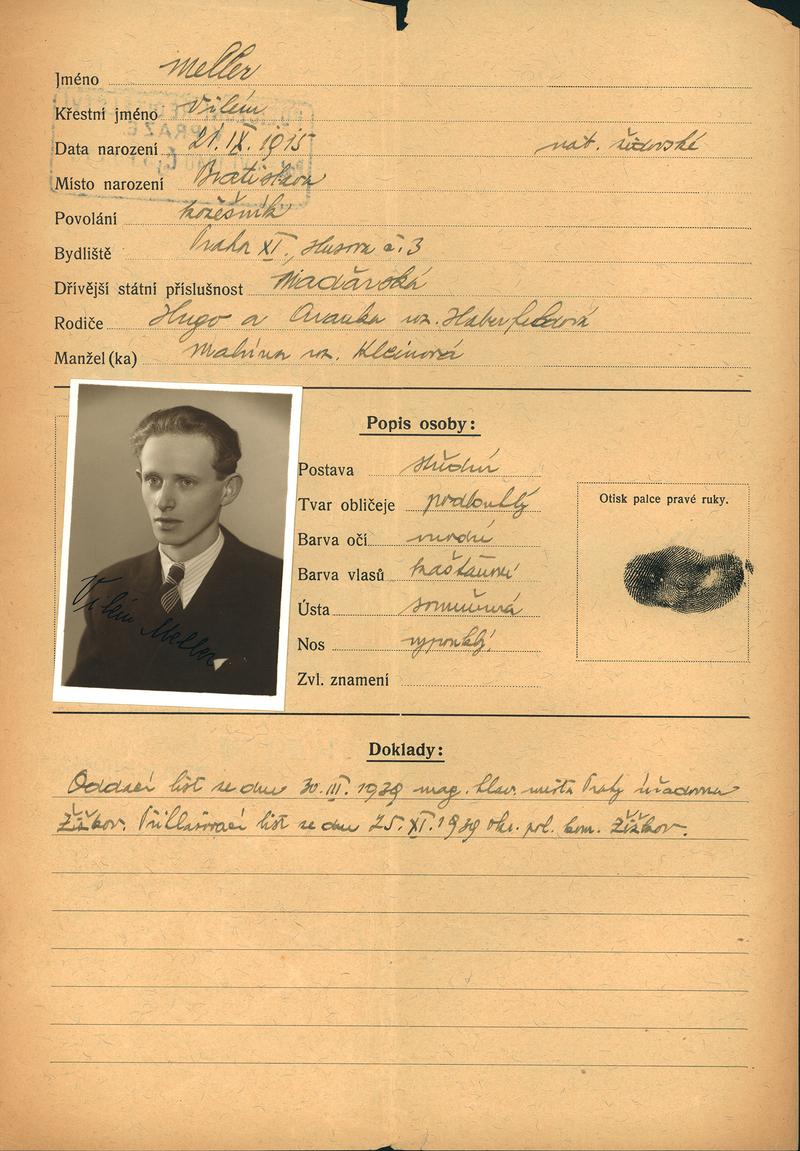 Jméno Meller
Křestní jméno Vilém
Data narození 21.IX.1915 nat. židovské
Místo narození Bratislava
Povolání kožešník
Bydliště Praha XI., Husova č. 3
Dřívější státní příslušnost Maďarská
Rodiče Hugo a Aranka roz. Haberfeldová
Manžel(ka) Malvína roz. Kleinová
Popis osoby:
Postava střední
Tvar obličeje podlouhlý
Barva očí modré
Barva vlasů kaštanové
Ústa souměrná
Nos vypouklý
Zvl. znamení
Vilém Meller
Otisk palce pravé ruky.
Doklady:
Oddací list ze dne 30.III.1939 mag. hlav. města Prahy úřadovna
Žižkov. Přihlašovací list ze dne 25.XI.1939 okr. pol. kom. Žižkov.